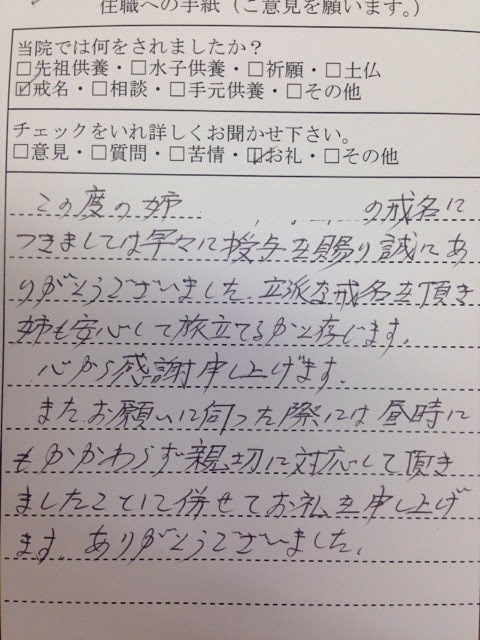 住職への手紙（ご意見を願います。）
当院では何をされましたか？
□先祖供養・□水子供養・□祈願・□土仏
☑戒名・□相談・□手元供養・□その他
チェックをいれ詳しくお聞かせ下さい。
□意見・□質問・□苦情・☑お礼・□その他
この度の姉 の戒名に
つきましては早々に授与を賜り誠にあ
りがとうございました。立派な戒名を頂き
姉も安心して旅立てるかと存じます。
心から感謝申し上げます。
またお願いに伺った際には昼時に
もかかわらず親切に対応して頂き
ましたことに併せてお礼を申し上げ
ます。ありがとうございました。